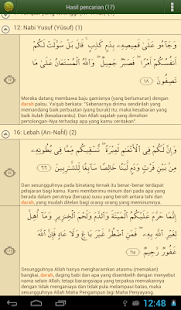 Hasil pencarian (17)
12: Nabi Yusuf (Yūsuf) (1)
وَجَاءُو عَلَىٰ قَمِيصِهِ بِدَمٍ كَذِبٍ ۚ قَالَ بَلْ سَوَّلَتْ لَكُمْ
أَنفُسُكُمْ أَمْرًا ۖ فَصَبْرٌ جَمِيلٌ ۖ وَاللَّهُ الْمُسْتَعَانُ عَلَىٰ مَا
تَصِفُونَ ١٨
Mereka datang membawa baju gamisnya (yang berlumuran) dengan
darah palsu. Ya'qub berkata: "Sebenarnya dirimu sendirilah yang
memandang baik perbuatan (yang buruk) itu; maka kesabaran yang baik
itulah (kesabaranku). Dan Allah sajalah yang dimohon
pertolongan-Nya terhadap apa yang kamu ceritakan"
16: Lebah (An-Naĥl) (2)
وَإِنَّ لَكُمْ فِي الْأَنْعَامِ لَعِبْرَةً ۖ نُّسْقِيكُم مِّمَّا فِي بُطُونِهِ
مِن بَيْنِ فَرْثٍ وَدَمٍ لَّبَنًا خَالِصًا سَائِغًا لِّلشَّارِبِينَ ٦٦
Dan sesungguhnya pada binatang ternak itu benar-benar terdapat
pelajaran bagi kamu. Kami memberimu minum dari pada apa yang
berada dalam perutnya (berupa) susu yang bersih antara tahi dan
darah, yang mudah ditelan bagi orang-orang yang meminumnya
إِنَّمَا حَرَّمَ عَلَيْكُمُ الْمَيْتَةَ وَالدَّمَ وَلَحْمَ الْخِنزِيرِ وَمَا
أُهِلَّ لِغَيْرِ اللَّهِ بِهِ ۖ فَمَنِ اضْطُرَّ غَيْرَ بَاغٍ وَلَا عَادٍ فَإِنَّ اللَّهَ
غَفُورٌ رَّحِيمٌ
Sesungguhnya Allah hanya mengharamkan atasmu (memakan) bangkai,
darah, daging babi dan apa yang disembelih dengan menyebut
nama selain Allah; tetapi barangsiapa yang terpaksa memakannya
dengan tidak menganiaya dan tidak pula melampaui batas, maka
sesungguhnya Allah Maha Pengampun lagi Maha Penyayang
12:48